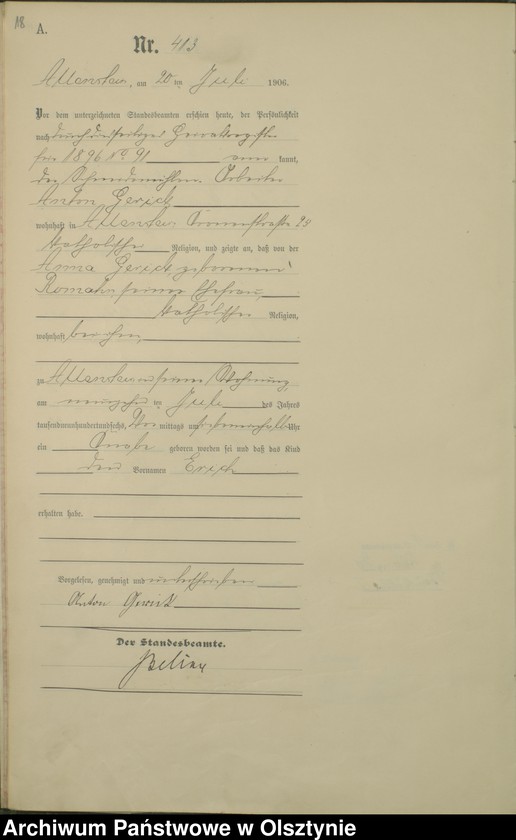 18
A.
Nr. 413
Allenstein, am 20 ten Juli 1906.
Vor dem unterzeichneten Standesbeamten erschien heute, der Persönlichkeit
nach durch
für 1896 No 91 kannt,
der Arbeiter
Anton Gerick
wohnhaft in Allenstein 23
katholischer Religion, und zeigte an, daß von der
Anna Gerick geborenen
Romahn seiner Ehefrau,
katholischer Religion,
wohnhaft bei ihm,
zu Allenstein in seiner Wohnung
am neunzehnten Juli des Jahres
tausendneunhundertundsechs, Vor mittags um Uhr
ein Knabe geboren worden sei und daß das Kind
den Vornamen Erich
erhalten habe.
Vorgelesen, genehmigt und unterschrieben
Anton Gerick
Der Standesbeamte.
Archiwum Państwowe w Olsztynie